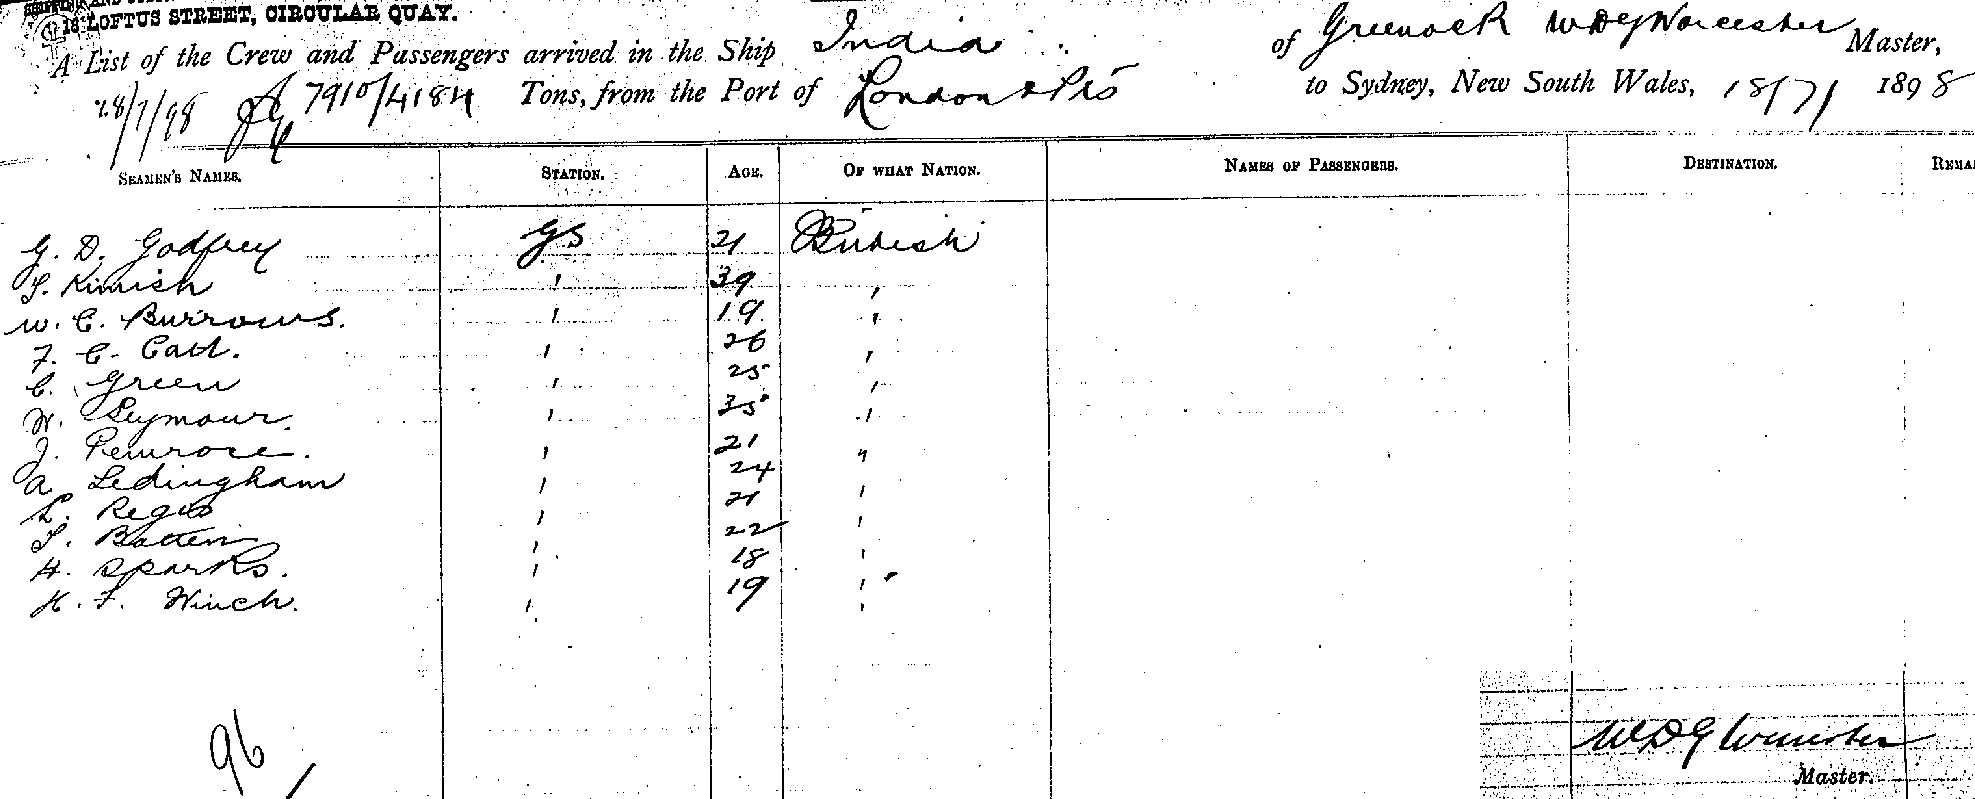 18 LOFTUS STREET, CIRCULAR QUAY.
A List of the Crew and Passengers arrived in the Ship India of Greenock W D G Worcester Master,
28/7/98 7910/4184 Tons, from the Port of London & Pts to Sydney, New South Wales, 18/7/ 1898
SEAMEN'S NAMES. STATION. AGE. OF WHAT NATION. NAMES OF PASSENGERS. DESTINATION.
G. D. Godfrey GS 21 British
Kimish ' 39 '
W. C. Burrows. ' 19 '
F. C. Catt. ' 26 '
C. Green ' 25 '
W. Seymour. ' 35 '
J. Penrose. ' 21 "
A Ledingham ' 24 '
' 21 '
Batten ' 22 '
H. Sparks. ' 18 '
H. F. Winch. ' 19 '
96
W D G Worcester
Master.